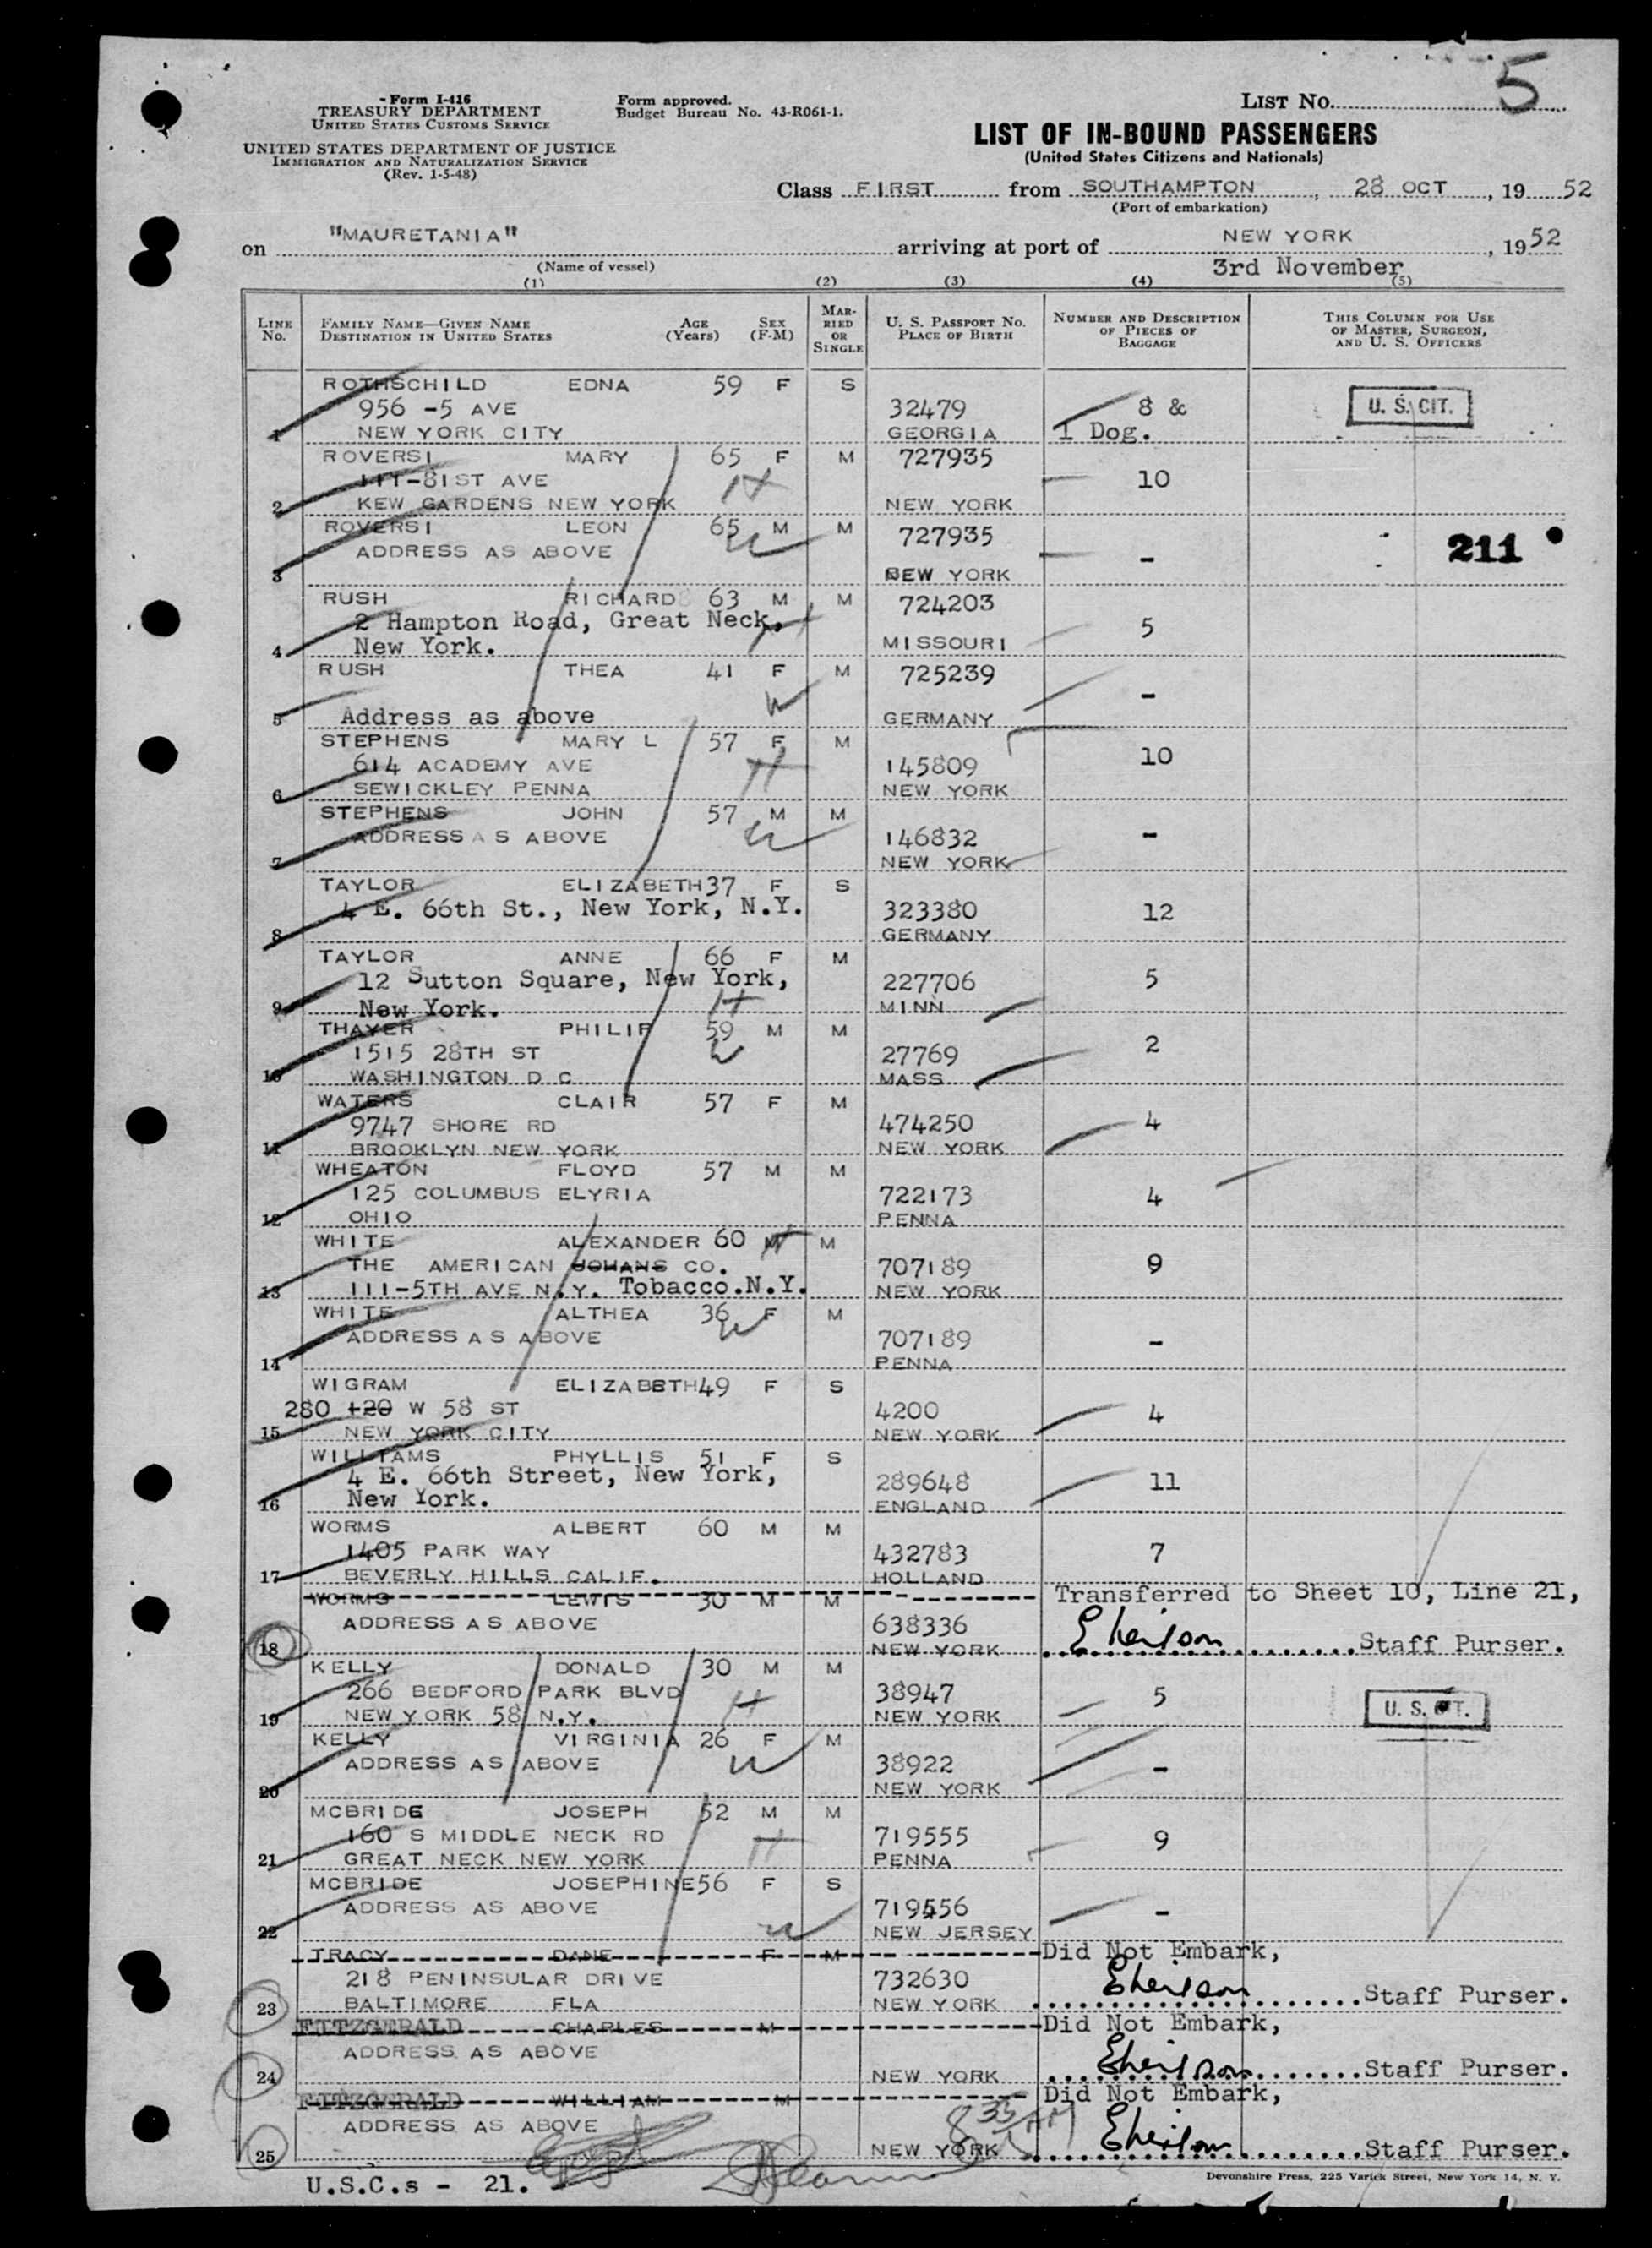 5
Form I-416
TREASURY DEPARTMENT
UNITED STATES CUSTOMS SERVICE
UNITED STATES DEPARTMENT OF JUSTICE
IMMIGRATION AND NATURALIZATION SERVICE
(Rev. 1-5-48)
Form approved.
Budget Bureau No. 43-R061-1.
LIST No.
LIST OF IN-BOUND PASSENGERS
(United States Citizens and Nationals)
Class FIRST from SOUTHAMPTON, 28 OCT, 19 52
(Port of embarkation)
on "MAURETANIA" arriving at port of NEW YORK, 1952
(Name of vessel) 3rd November
(1) (2) (3) (4) (5)
LINE No. FAMILY NAME—GIVEN NAME DESTINATION IN UNITED STATES AGE (Years) SEX (F-M) MARRIED OR SINGLE U. S. PASSPORT NO. PLACE OF BIRTH NUMBER AND DESCRIPTION OF PIECES OF BAGGAGE THIS COLUMN FOR USE OF MASTER, SURGEON, AND U. S. OFFICERS
ROTHSCHILD EDNA 59 F S
956 -5 AVE 32479 8 & U. S. CIT.
1 NEW YORK CITY GEORGIA 1 Dog.
ROVERSI MARY 65 F M 727935
111-81ST AVE 10
2 KEW GARDENS NEW YORK NEW YORK
ROVERSI LEON 65 M M 727935
ADDRESS AS ABOVE - 211
3 NEW YORK
RUSH RICHARD 63 M M 724203
2 Hampton Road, Great Neck, 5
4 New York. MISSOURI
RUSH THEA 41 F M 725239
-
5 Address as above GERMANY
STEPHENS MARY L 57 F M
614 ACADEMY AVE 145809 10
6 SEWICKLEY PENNA NEW YORK
STEPHENS JOHN 57 M M
ADDRESS A S ABOVE 146832 -
7 NEW YORK
TAYLOR ELIZABETH 37 F S
4 E. 66th St., New York, N.Y. 323380 12
8 GERMANY
TAYLOR ANNE 66 F M
12 Sutton Square, New York, 227706 5
9 New York. MINN
THAYER PHILIP 59 M M
1515 28TH ST 27769 2
10 WASHINGTON D C MASS
WATERS CLAIR 57 F M
9747 SHORE RD 474250 4
11 BROOKLYN NEW YORK NEW YORK
WHEATON FLOYD 57 M M
125 COLUMBUS ELYRIA 722173 4
12 OHIO PENNA
WHITE ALEXANDER 60 M M
THE AMERICAN CO. 707189 9
13 111-5TH AVE N.Y. Tobacco.N.Y. NEW YORK
WHITE ALTHEA 36 F M
ADDRESS A S ABOVE 707189 -
14 PENNA
WIGRAM ELIZABETH 49 F S
280 120 W 58 ST 4200 4
15 NEW YORK CITY NEW YORK
WILLIAMS PHYLLIS 51 F S
4 E. 66th Street, New York, 289648 11
16 New York. ENGLAND
WORMS ALBERT 60 M M
1405 PARK WAY 432783 7
17 BEVERLY HILLS CALIF. HOLLAND
WORMS LEWIS 30 M M Transferred to Sheet 10, Line 21,
ADDRESS A S ABOVE 638336
18 NEW YORK Staff Purser.
KELLY DONALD 30 M M
266 BEDFORD PARK BLVD 38947 5 U. S. CIT.
19 NEW YORK 58 N.Y. NEW YORK
KELLY VIRGINIA 26 F M
ADDRESS AS ABOVE 38922 -
20 NEW YORK
MCBRIDE JOSEPH 52 M M
160 S MIDDLE NECK RD 719555 9
21 GREAT NECK NEW YORK PENNA
MCBRIDE JOSEPHINE 56 F S
ADDRESS AS ABOVE 719556 -
22 NEW JERSEY
TRACY DANE F M Did Not Embark,
218 PENINSULAR DRIVE 732630
23 BALTIMORE FLA NEW YORK Staff Purser.
FITZGERALD CHARLES M Did Not Embark,
ADDRESS AS ABOVE
24 NEW YORK Staff Purser.
FITZGERALD WILLIAM M Did Not Embark,
ADDRESS AS ABOVE 8 35 AM
25 NEW YORK Staff Purser.
U.S.C.s - 21.
Devonshire Press, 225 Varick Street, New York 14, N. Y.